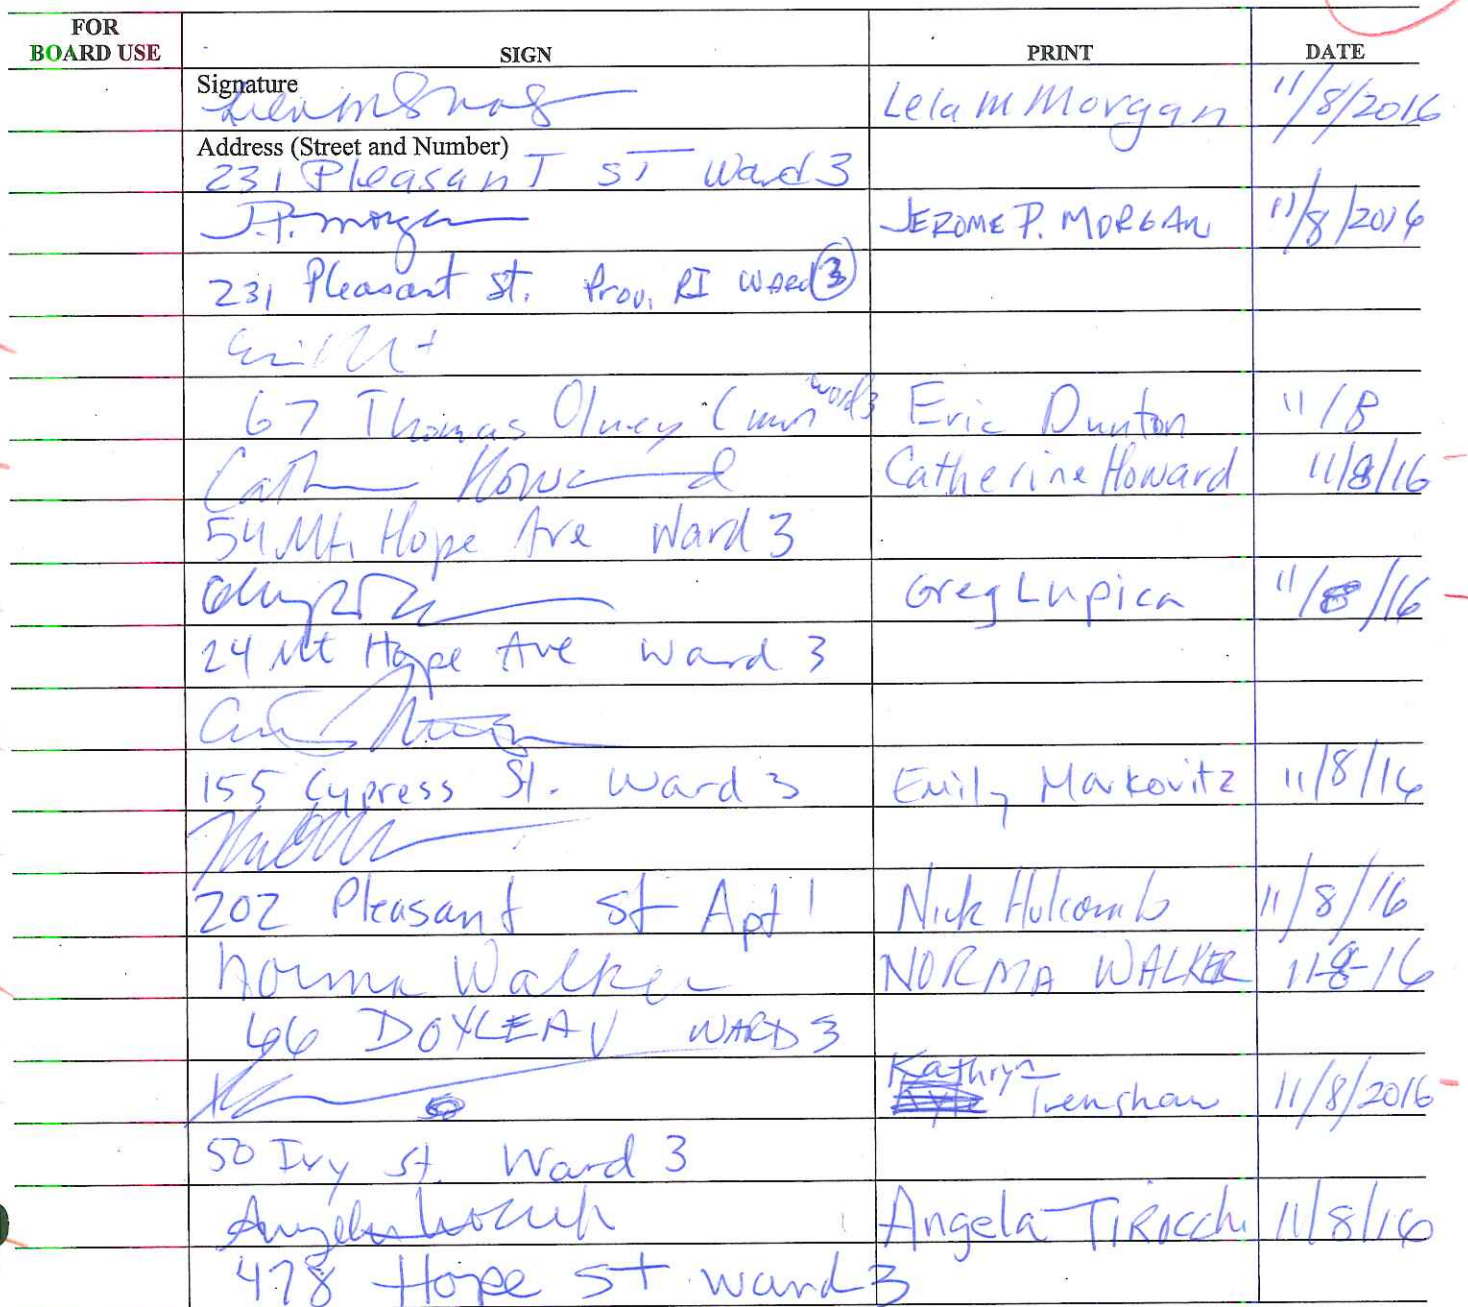 FOR BOARD USE SIGN PRINT DATE
Signature Lela M Morgan 11/8/2016
Address (Street and Number)
231 Pleasant ST Ward 3
J.P. Morgan JEROME P. MORGAN 11/8/2016
231 Pleasant St. Prov. RI Ward 3
67 Thomas Olney ward 3 Eric Dunton 11/8
Howard Catherine Howard 11/8/16
54 Mt. Hope Ave Ward 3
Greg Lupica 11/8/16
24 Mt Hope Ave Ward 3
155 Cypress St. Ward 3 Emily Markovitz 11/8/16
202 Pleasant St Apt 1 Nick Holcomb 11/8/16
Norma Walker NORMA WALKER 11-8-16
66 DOYLE AV WARD 3
Kathryn Trenshaw 11/8/2016
50 Ivy St. Ward 3
Angela Angela TIROCCHI 11/8/16
478 Hope St Ward 3